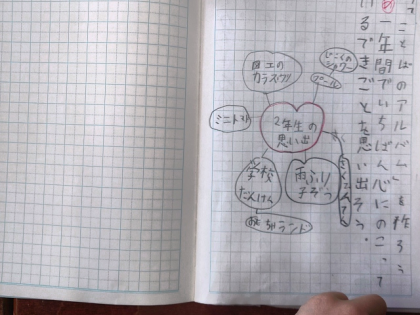 ことばのアルバムを作ろう
め 一年間でいちばん心にのこって
いるできごとを思い出そう。
2年生の
思い出
図工の
カラスウリ
じごくの
シャワー
プール
ミニトマト
学校
たんけん
おもちゃランド
雨ふり
子ぞう